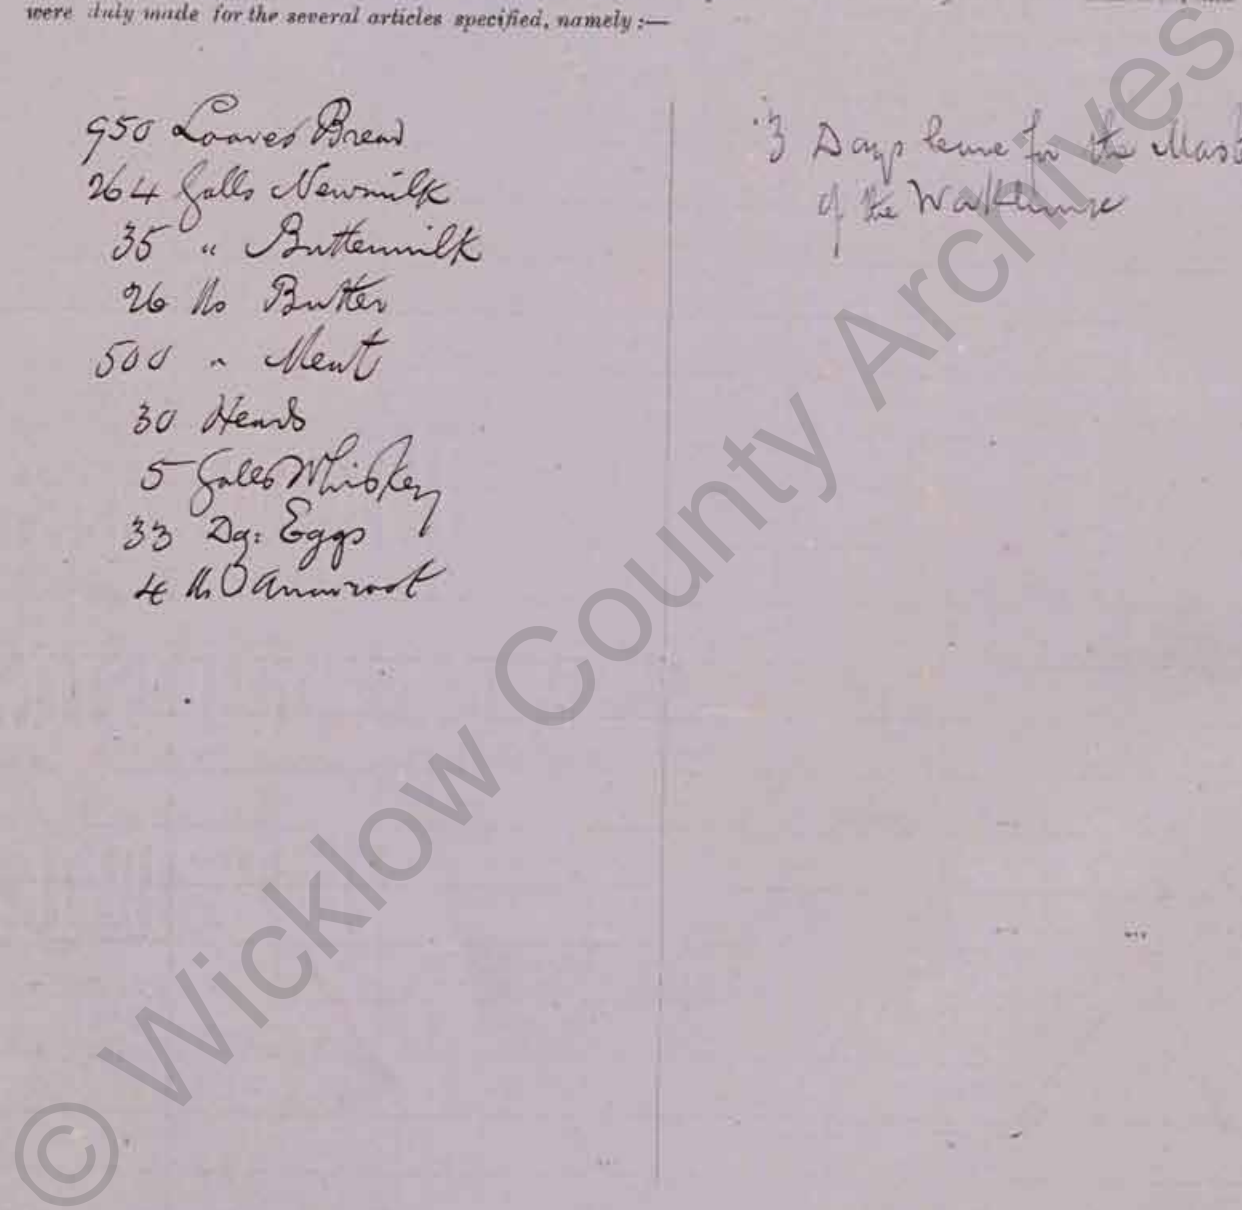 were duly made for the several articles specified, namely :—
950 Loaves Bread
264 Galls Newmilk
35 " Buttermilk
26 lbs Butter
500 " Meat
30 Heads
5 Galls Whiskey
33 Dz: Eggs
4 lbs Arrowroot
3 Days leave for the Mast
of the Workhouse
© Wicklow County Archives